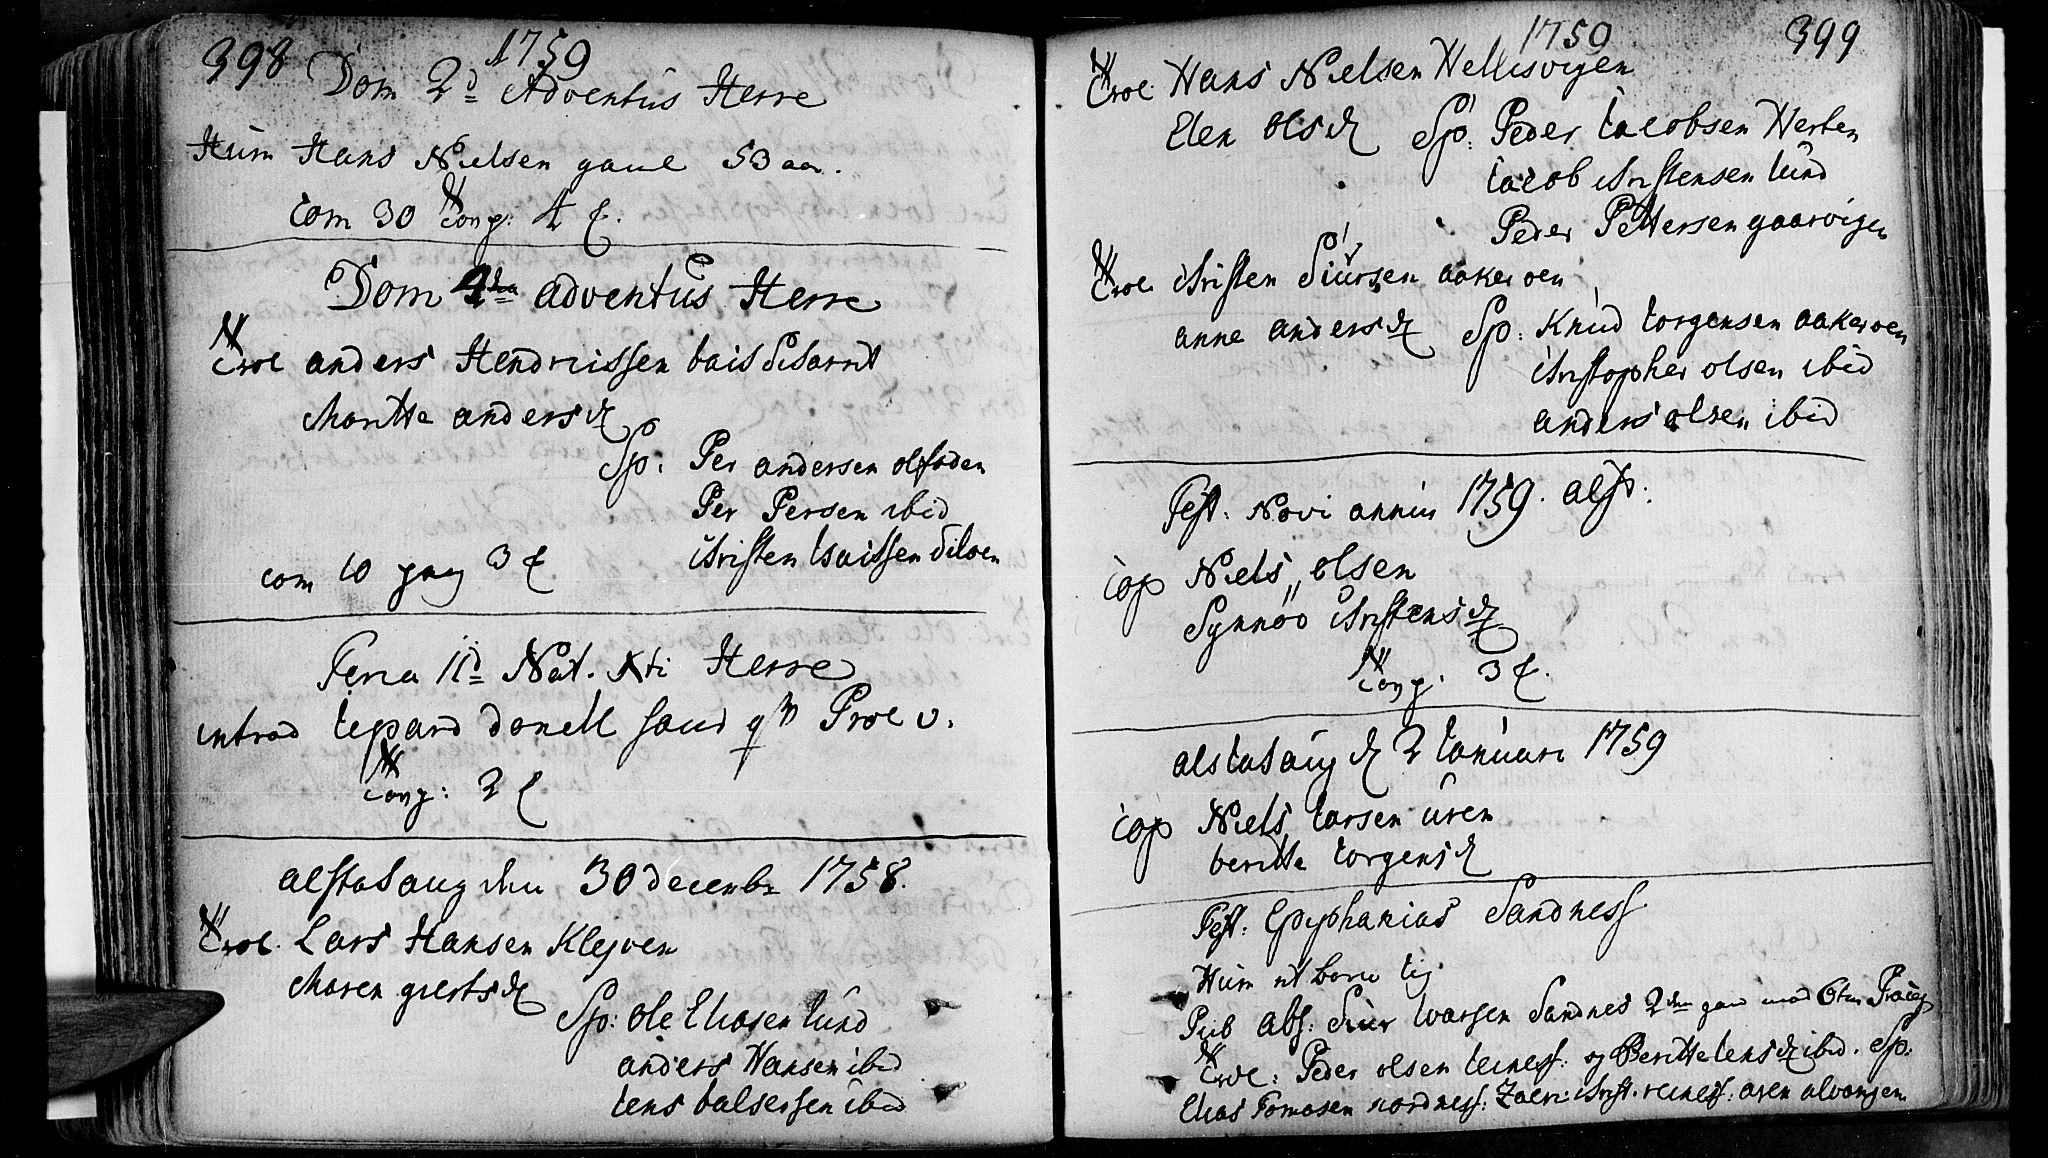 398
1759
Dom 2d Adventus Herrøe
Hum Hans Nielsen gaul 53 aar.
Com 30 Cong: 4 f.
Dom 4ta adventus Herrøe
Trol anders Hendricssen
Maritta andersd
Sp: Per andersen olfoden
Per Persen ibid
Christen Isacssen Siloen
com 10 3 f
Feria IId Nat. Xti Herrøe
introd Lepard donell qm Prol v.
Cong: 2 f
alstahaug den 30 decembr 1758.
Trol. Lars Hansen Klejven
Maren giertsd
Sp: Ole Eliasen Lund
anders Hansen ibid
Iens balsersen ibid
1759
399
Trol. Hans Nielsen Hellesvigen
Elen olsd Sp: Peder Iacobsen Herten
Iacob Christensen Lund
Peder Pettersen gaarvigen
Trol Christen Siursen aakeroen
anne andersd Sp: Knud Iorgensen aakeroen
Christopher olsen ibid
anders olsen ibid
Fest: Novi annii 1759. alst:
Cop Niels olsen
Synnøv Christensd
Cong: 3 f.
alstahaug d 2 Ianuari 1759
Cop Niels Larsen uren
beritta Iorgensd
Fest: Epyphanias Sandness
Hum
Pub abs: Siur Ivarsen Sandnes 2den gang med
Trol: Peder olsen og Beritte Iensd ibid. Sp:
Elias Tomasen nordness: Zacri: Christ: aren alvangen